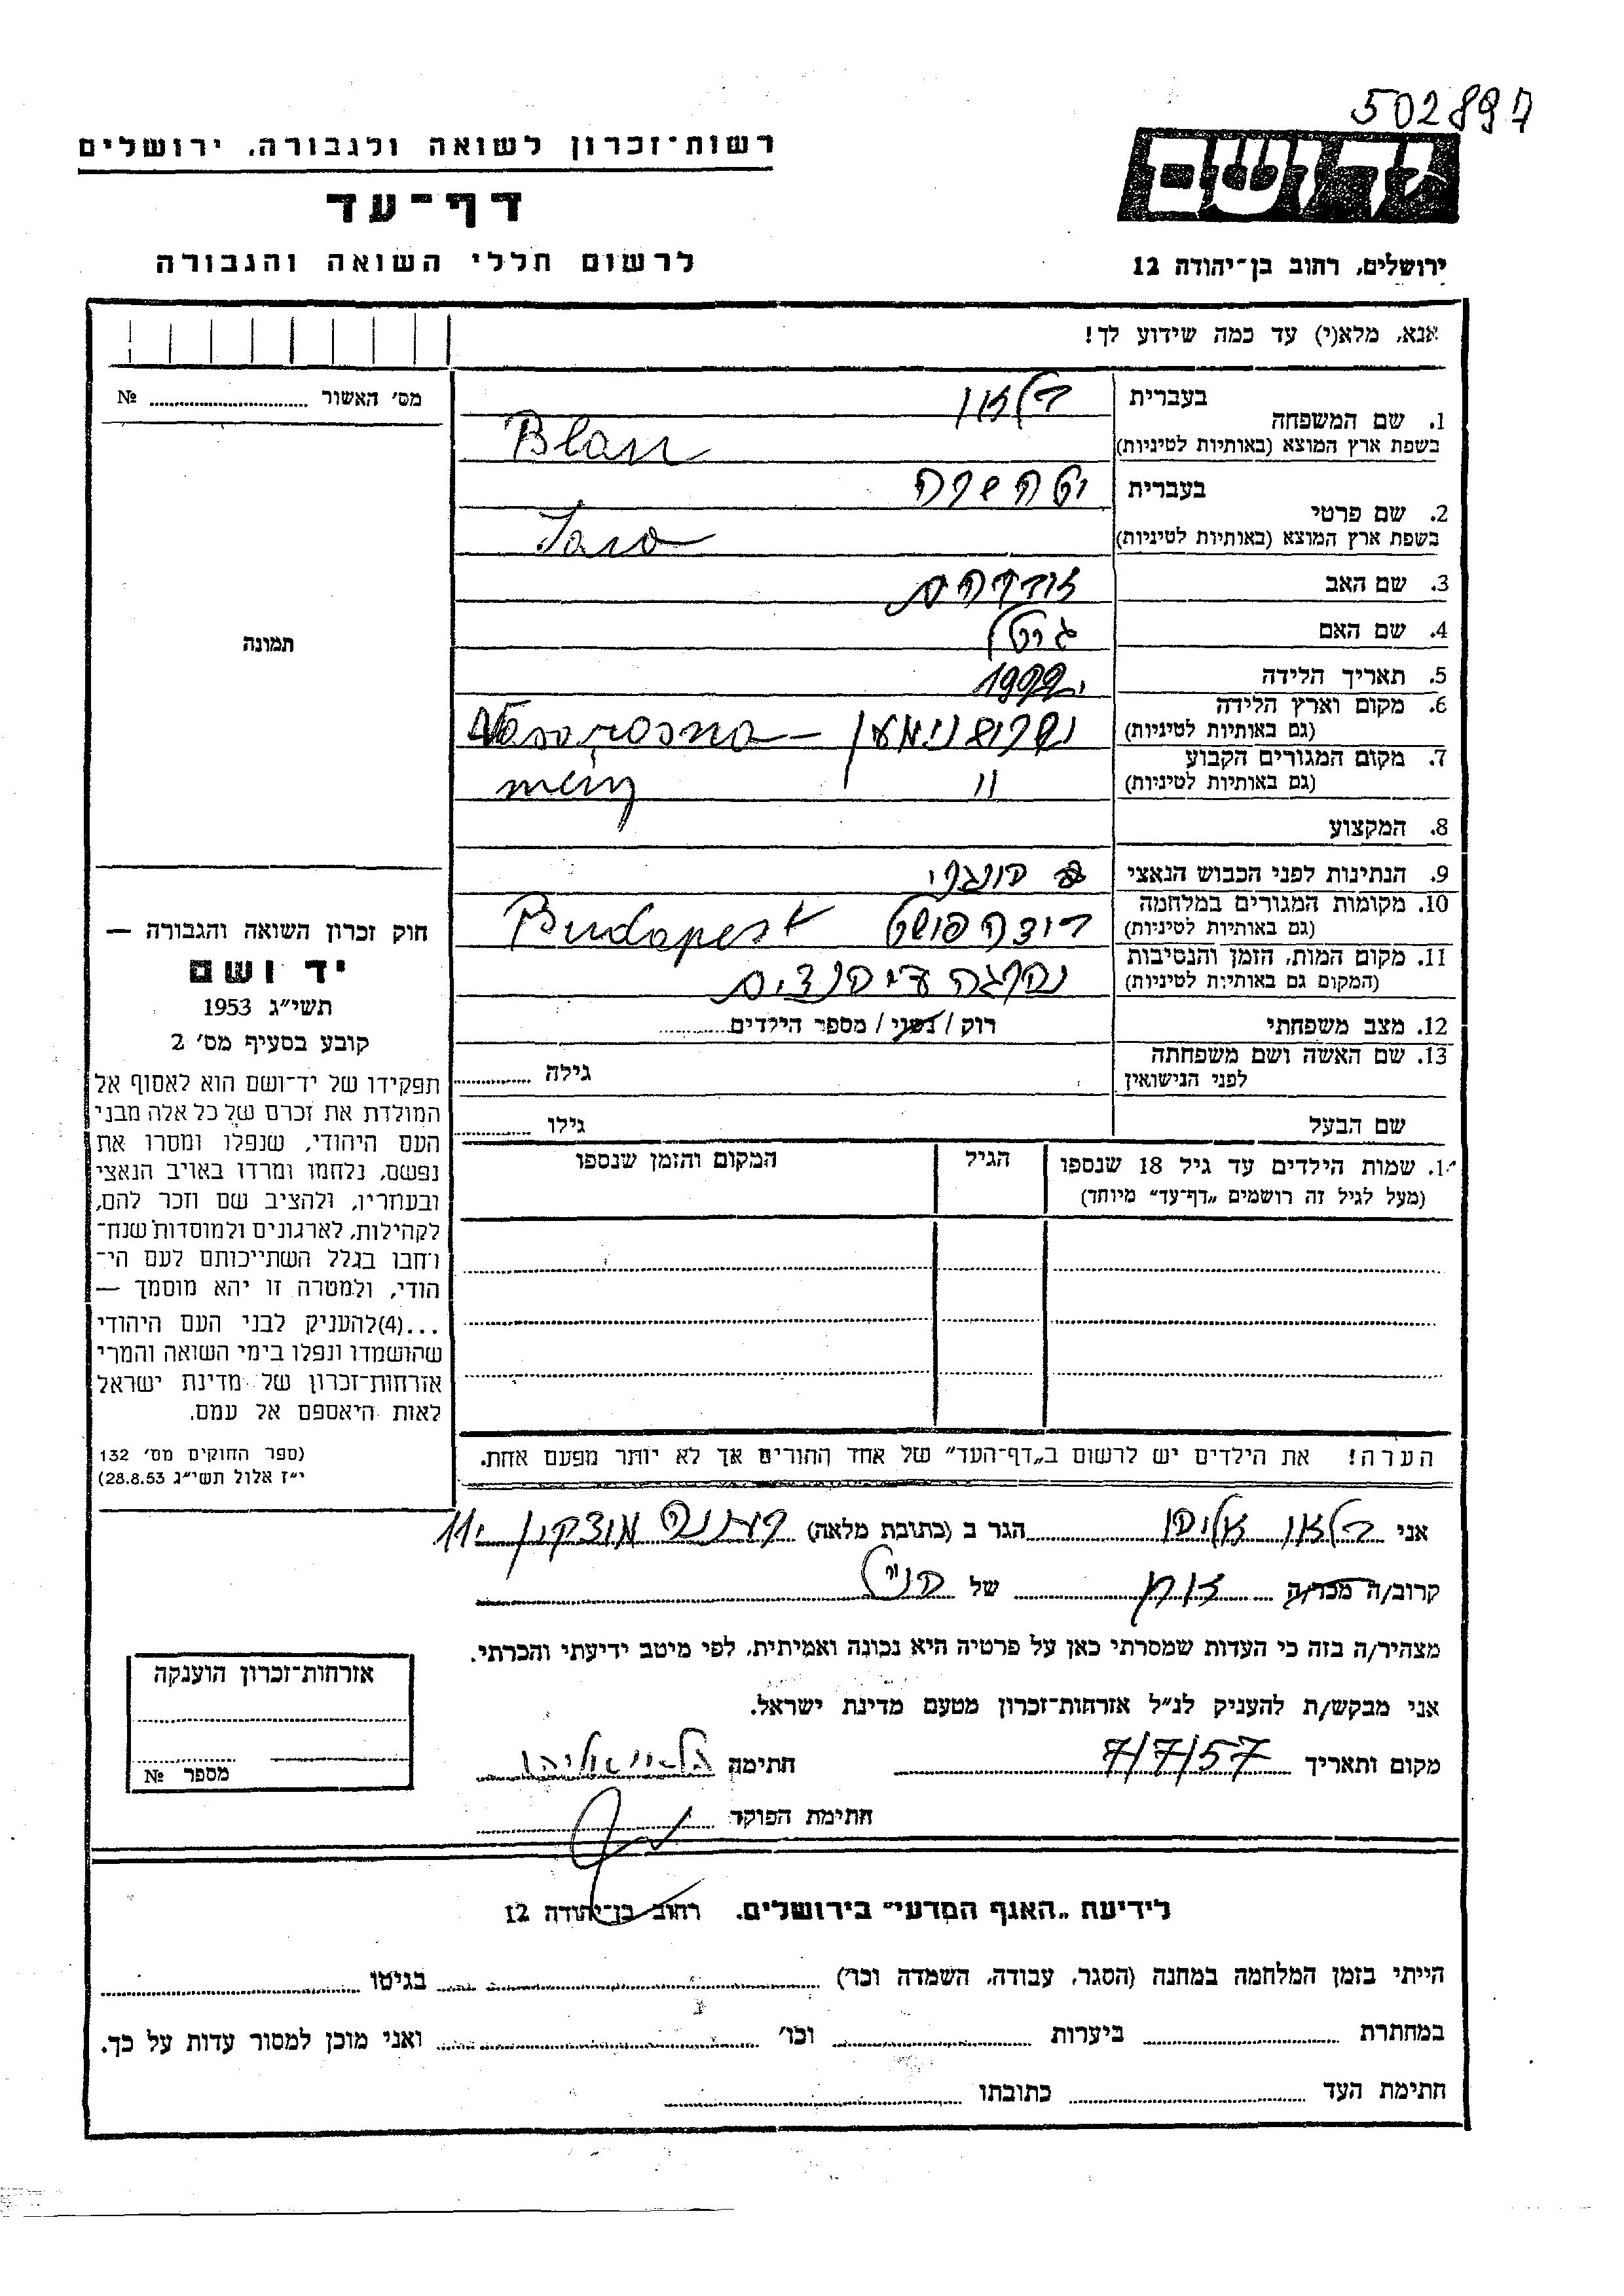 502897
רשות־זכרון לשואה ולגבורה, ירושלים
יד ושם
דף־עד
לרשום חללי השואה והגבורה
ירושלים, רחוב בן־יהודה 12
אנא, מלא(י) עד כמה שידוע לך!
מס׳ האשור ........ №
תמונה
1. שם המשפחה
בעברית
בלאו
בשפת ארץ המוצא (באותיות לטיניות)
Blau
2. שם פרטי
בעברית
יטה שרה
בשפת ארץ המוצא (באותיות לטיניות)
3. שם האב אברהם
4. שם האם גיטל
5. תאריך הלידה
6. מקום וארץ הלידה
(גם באותיות לטיניות)
7. מקום המגורים הקבוע
(גם באותיות לטיניות)
"
8. המקצוע
9. הנתינות לפני הכבוש הנאצי הונגרי
10. מקומות המגורים במלחמה
(גם באותיות לטיניות)
בודהפשט Budapest
11. מקום המות, הזמן והנסיבות
(המקום גם באותיות לטיניות)
נהרגה ע״י הנצים
12. מצב משפחתי רוק / נשוי / מספר הילדים........
13. שם האשה ושם משפחתה
לפני הנישואין
גילה ........
שם הבעל גילו ........
1. שמות הילדים עד גיל 18 שנספו
(מעל לגיל זה רושמים „דף־עד״ מיוחד)
הגיל
המקום והזמן שנספו
הערה! את הילדים יש לרשום ב„דף־העד״ של אחד ההורים אך לא יותר מפעם אחת.
חוק זכרון השואה והגבורה —
יד ושם
תשי״ג 1953
קובע בסעיף מס׳ 2
תפקידו של יד־ושם הוא לאסוף אל
המולדת את זכרם של כל אלה מבני
העם היהודי, שנפלו ומסרו את
נפשם, נלחמו ומרדו באויב הנאצי
ובעוזריו, ולהציב שם וזכר להם,
לקהילות, לארגונים ולמוסדות שנח־
רחבו בגלל השתייכותם לעם הי־
הודי, ולמטרה זו יהא מוסמך —
...(4)להעניק לבני העם היהודי
שהושמדו ונפלו בימי השואה והמרי
אזרחות־זכרון של מדינת ישראל
לאות היאספם אל עמם.
(ספר החוקים מס׳ 132
י״ז אלול תשי״ג 28.8.53)
אני בלאו אליהו הגר ב (כתובת מלאה) מוצקין 11
קרוב/ה מכר/ה אח של הנ״ל
מצהיר/ה בזה כי העדות שמסרתי כאן על פרטיה היא נכונה ואמיתית, לפי מיטב ידיעתי והכרתי.
אני מבקש/ת להעניק לנ״ל אזרחות־זכרון מטעם מדינת ישראל.
מקום ותאריך 7/7/57 חתימה בלאו אליהו
חתימת הפוקד
אזרחות־זכרון הוענקה
מספר №
לידיעת „האגף המדעי״ בירושלים, רחוב בן־יהודה 12
הייתי בזמן המלחמה במחנה (הסגר, עבודה, השמדה וכו׳) ........ בגיטו ........
במחתרת ........ ביערות ........ וכו׳ ........ ואני מוכן למסור עדות על כך.
חתימת העד ........ כתובתו ........